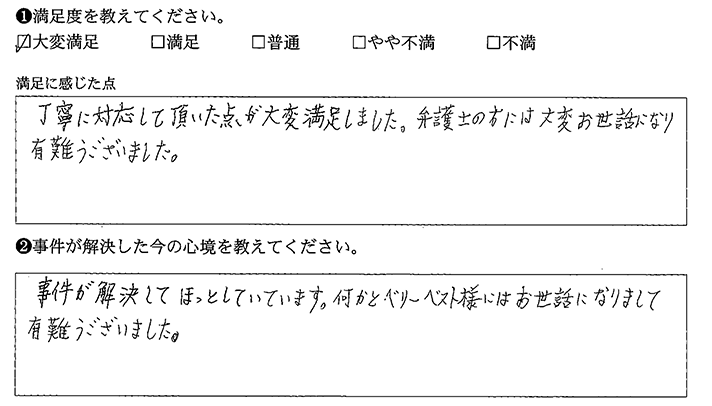 ❶満足度を教えてください。
☑大変満足 □満足 □普通 □やや不満 □不満
満足に感じた点
丁寧に対応して頂いた点が大変満足しました。弁護士の方には大変お世話になり
有難うございました。
❷事件が解決した今の心境を教えてください。
事件が解決してほっとしていています。何かとベリーベスト様にはお世話になりまして
有難うございました。